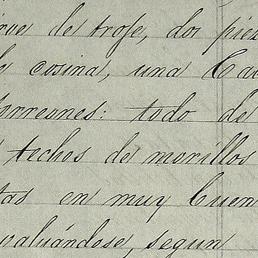 de trofe, dos
cosina, una
torreones: todo de
techos de morillos
en muy buen
valuándose, segun